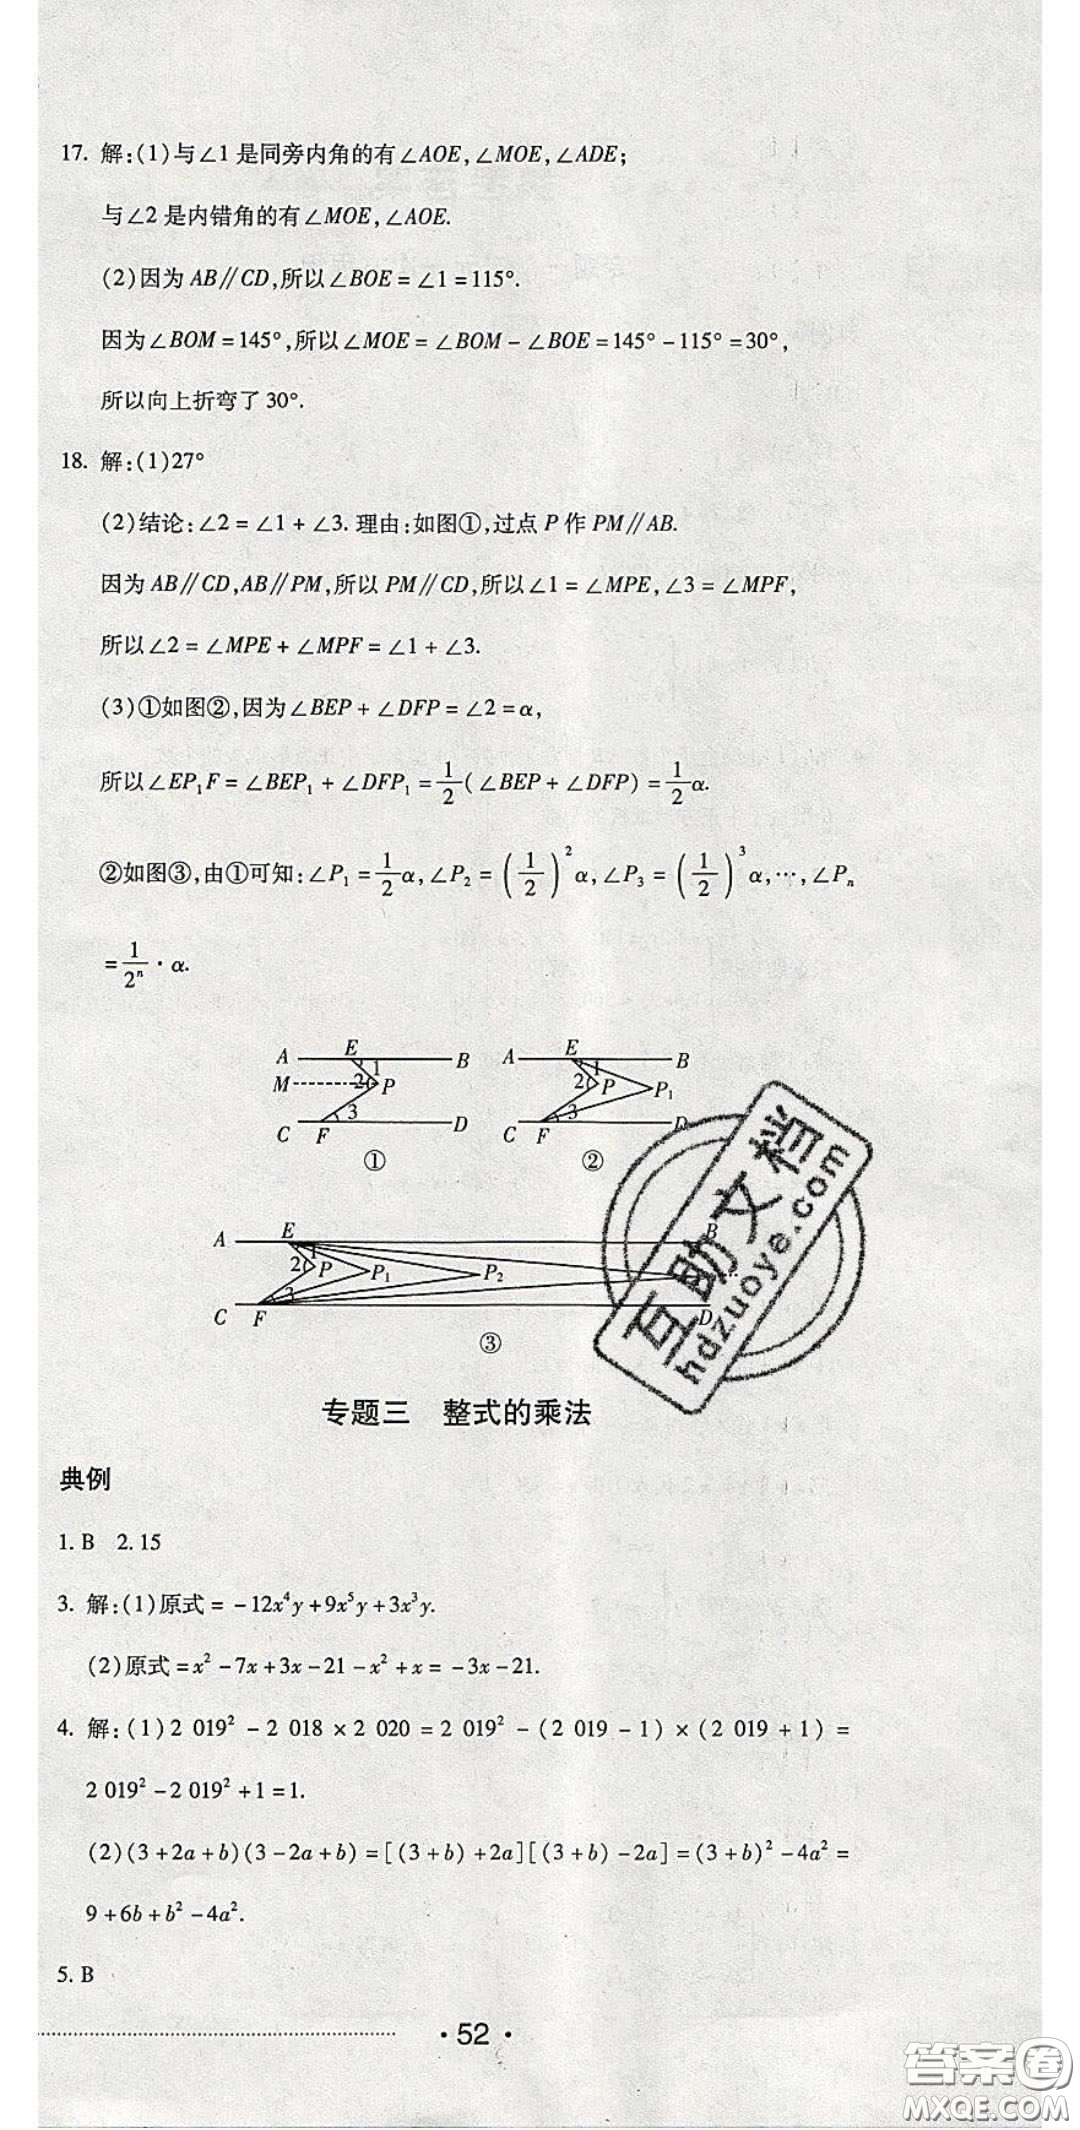 17. 解:(1)与∠1是同旁内角的有∠AOE,∠MOE,∠ADE;
与∠2是内错角的有∠MOE,∠AOE.
(2)因为AB∥CD,所以∠BOE=∠1=115°.
因为∠BOM=145°,所以∠MOE=∠BOM-∠BOE=145°-115°=30°,
所以向上折弯了30°.
18. 解:(1)27°
(2)结论:∠2=∠1+∠3.理由:如图①,过点P作PM∥AB.
因为AB∥CD,AB∥PM,所以PM∥CD,所以∠1=∠MPE,∠3=∠MPF,
所以∠2=∠MPE+∠MPF=∠1+∠3.
(3)①如图②,因为∠BEP+∠DFP=∠2=α,
所以∠EP₁F=∠BEP₁+∠DFP₁=1/2(∠BEP+∠DFP)=1/2α.
②如图③,由①可知:∠P₁=1/2α,∠P₂=(1/2)²α,∠P₃=(1/2)³α,…,∠Pₙ
=1/2ⁿ·α.
A E B A E B
1 1
M 2 P 2 P P₁
3 3
C F D C F D
① ②
A E B
1
2 P P₁ P₂ …
3
C F D
③
互助文档
hdzuoye.com
专题三 整式的乘法
典例
1. B 2. 15
3. 解:(1)原式=-12x⁴y+9x⁵y+3x³y.
(2)原式=x²-7x+3x-21-x²+x=-3x-21.
4. 解:(1)2 019²-2 018×2 020=2 019²-(2 019-1)×(2 019+1)=
2 019²-2 019²+1=1.
(2)(3+2a+b)(3-2a+b)=[(3+b)+2a][(3+b)-2a]=(3+b)²-4a²=
9+6b+b²-4a².
5. B
·52·
答案圈
MXQE.COM